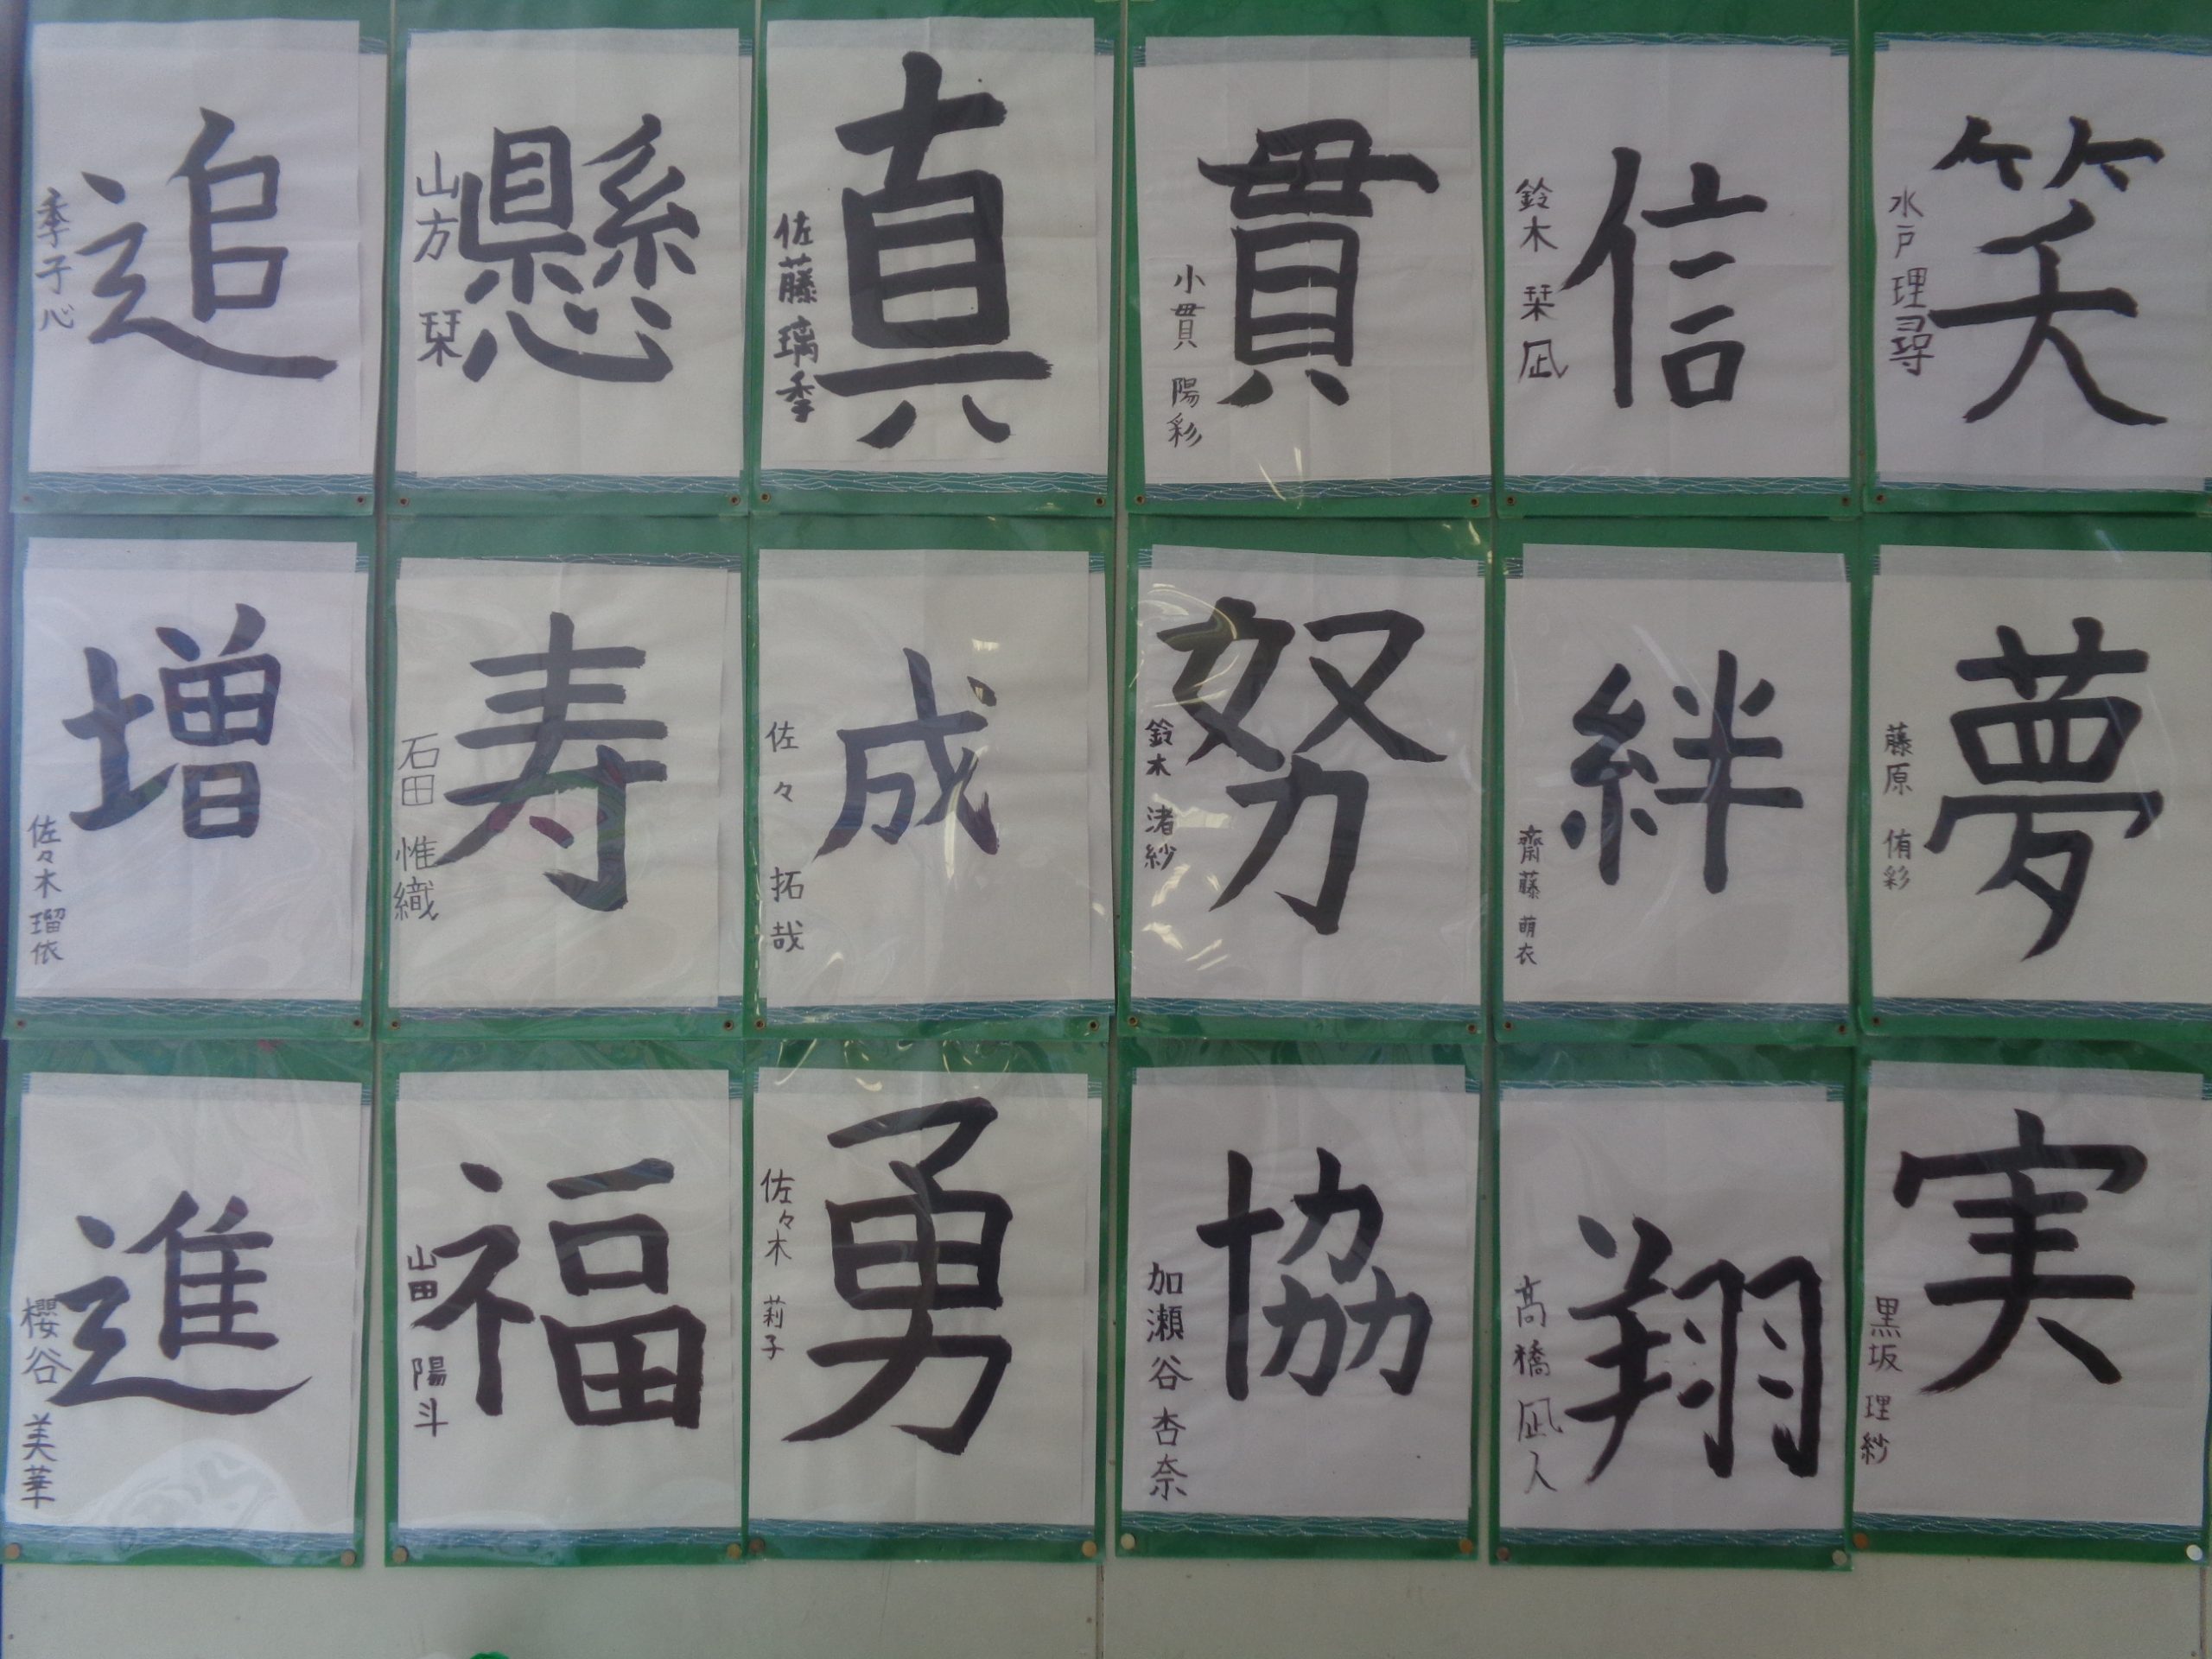 追
季子心
懸
山方 栞
真
佐藤璃季
貫
小貫 陽彩
信
鈴木 栞凪
笑
水戸理尋
増
佐々木瑠依
寿
石田 惟織
成
佐々 拓哉
努
鈴木 渚紗
絆
齋藤 萌衣
夢
藤原 侑彩
進
櫻谷 美華
福
山田 陽斗
勇
佐々木 莉子
協
加瀬谷杏奈
翔
高橋凪人
実
黒坂 理紗